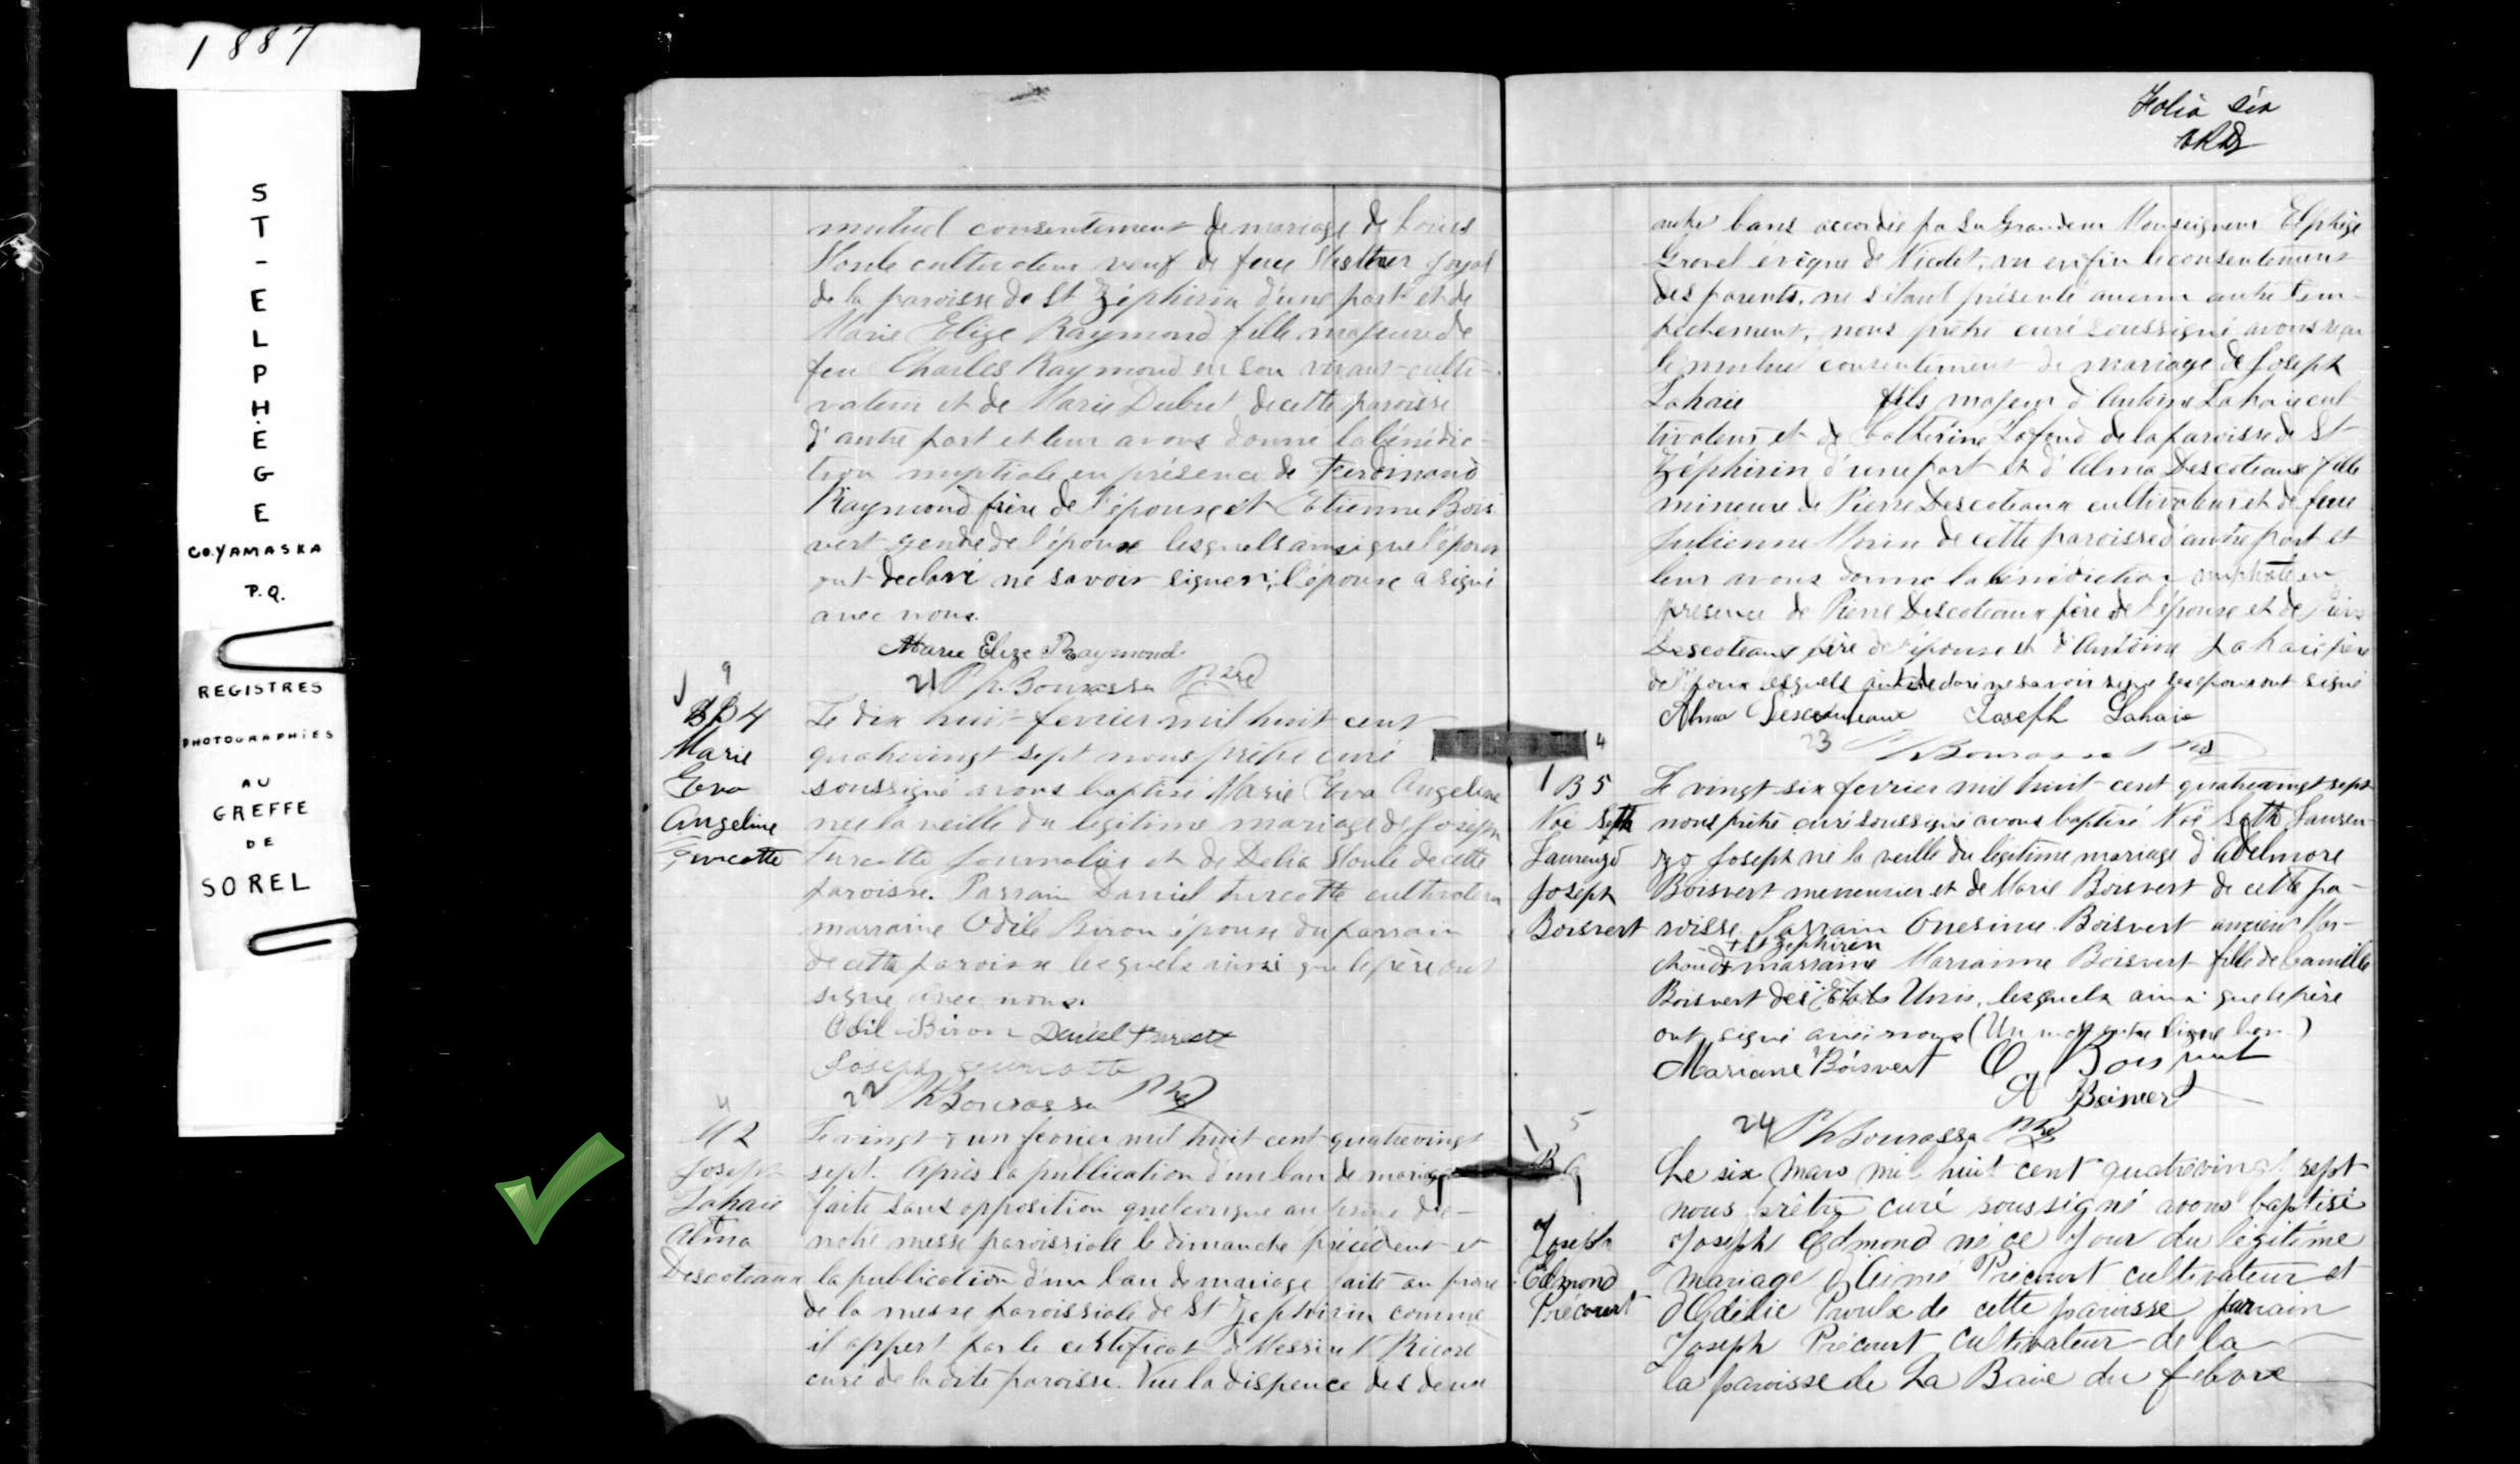 1887
ST-ELPHÈGE
CO. YAMASKA
P.Q.
REGISTRES
PHOTOGRAPHIES
AU
GREFFE
DE
SOREL
mutuel consentement de mariage de Louis
Houle cultivateur veuf de feue Esther Joyal
de la paroisse de St Zéphirin d'une part et de
Marie Elize Raymond fille majeure de
feu Charles Raymond en son vivant culti-
vateur et de Marie Dubut de cette paroisse
d'autre part et leur avons donné la bénédic-
tion nuptiale en présence de Ferdinand
Raymond frère de l'épouse et Etienne Bois
vert gendre de l'époux lesquels ainsi que l'époux
ont declaré ne savoir signer; l'épouse a signé
avec nous.
Marie Elize Raymond
21 Ph. Bourassa Ptre
9
B 4
Marie
Eva
Angeline
Turcotte
Le dix huit fevrier mil huit cent
quatrevingt sept nous prêtre curé
soussigné avons baptisé Marie Eva Angeline
née la veille du légitime mariage de Joseph
Turcotte journalier et de Delia Houle de cette
paroisse. Parrain Daniel turcotte cultivateur
marraine Odile Biron épouse du parrain
de cette paroisse lesquels ainsi que le père ont
signé avec nous.
Odil Biron Daniel turcotte
Joseph turcotte
22 Ph Bourassa Ptre
4
M 2
Joseph
Lahaie
Alma
Descoteaux
Le vingt & un fevrier mil huit cent quatrevingt
sept. Après la publication d'un ban de mariage
faite sans opposition quelconque au prône de
notre messe paroissiale le dimanche précédent et
la publication d'un ban de mariage faite au prône
de la messe paroissiale de St Zéphirin comme
il appert par le certificat de Messire Ricard
curé de la dite paroisse. Vu la dispence des deux
Folio six
autre bans accordée par Sa Grandeur Monseigneur Elphège
Gravel évêque de Nicolet, vu enfin le consentement
des parents, ne s'étant présenté aucun autre em-
pêchement, nous prêtre curé soussigné avons reçu
le mutuel consentement de mariage de Joseph
Lahaie fils majeur d'Antoine Lahaie cul-
tivateur et de Catherine Lafond de la paroisse de St
Zéphirin d'une part et d'Alma Descoteaux fille
mineure de Pierre Descoteaux cultivateur et de feue
Julienne Morin de cette paroisse d'autre part et
leur avons donné la bénédiction nuptiale en
présence de Pierre Descoteaux père de l'épouse et de
Descoteaux frère de l'épouse et d'Antoine Lahaie père
de l'époux lesquels ont declaré ne savoir signer les époux ont signé
Alma Descoteaux Joseph Lahaie
23 Ph Bourassa Ptre
4
B 5
Noé Seth
Laurenzo
Joseph
Boisvert
Le vingt six fevrier mil huit cent quatrevingt sept
nous prêtre curé soussigné avons baptisé Noé Seth Lauren-
zo Joseph né la veille du légitime mariage d'Adelmore
Boisvert menuisier et de Marie Boisvert de cette pa-
roisse. Parrain Onesime Boisvert ancien Mar-
+ St Zéphirin
chand + marraine Marianne Boisvert fille de Camille
Boisvert des Etats Unis, lesquels ainsi que le père
ont signé avec nous (Un mot entre ligne bon)
Mariane Boisvert O Boisvert
A Boisvert
24 Ph Bourassa Ptre
5
B 6
Joseph
Edmond
Précourt
Le six mars mil huit cent quatrevingt sept
nous prêtre curé soussigné avons baptisé
Joseph Edmond né ce jour du légitime
mariage d'Aimé Précourt cultivateur et
d'Odélie Proulx de cette paroisse parrain
Joseph Précourt cultivateur de la
la paroisse de La Baie du febvre